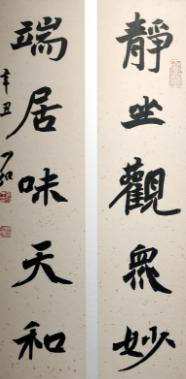 靜坐觀眾妙
端居味天和
辛丑